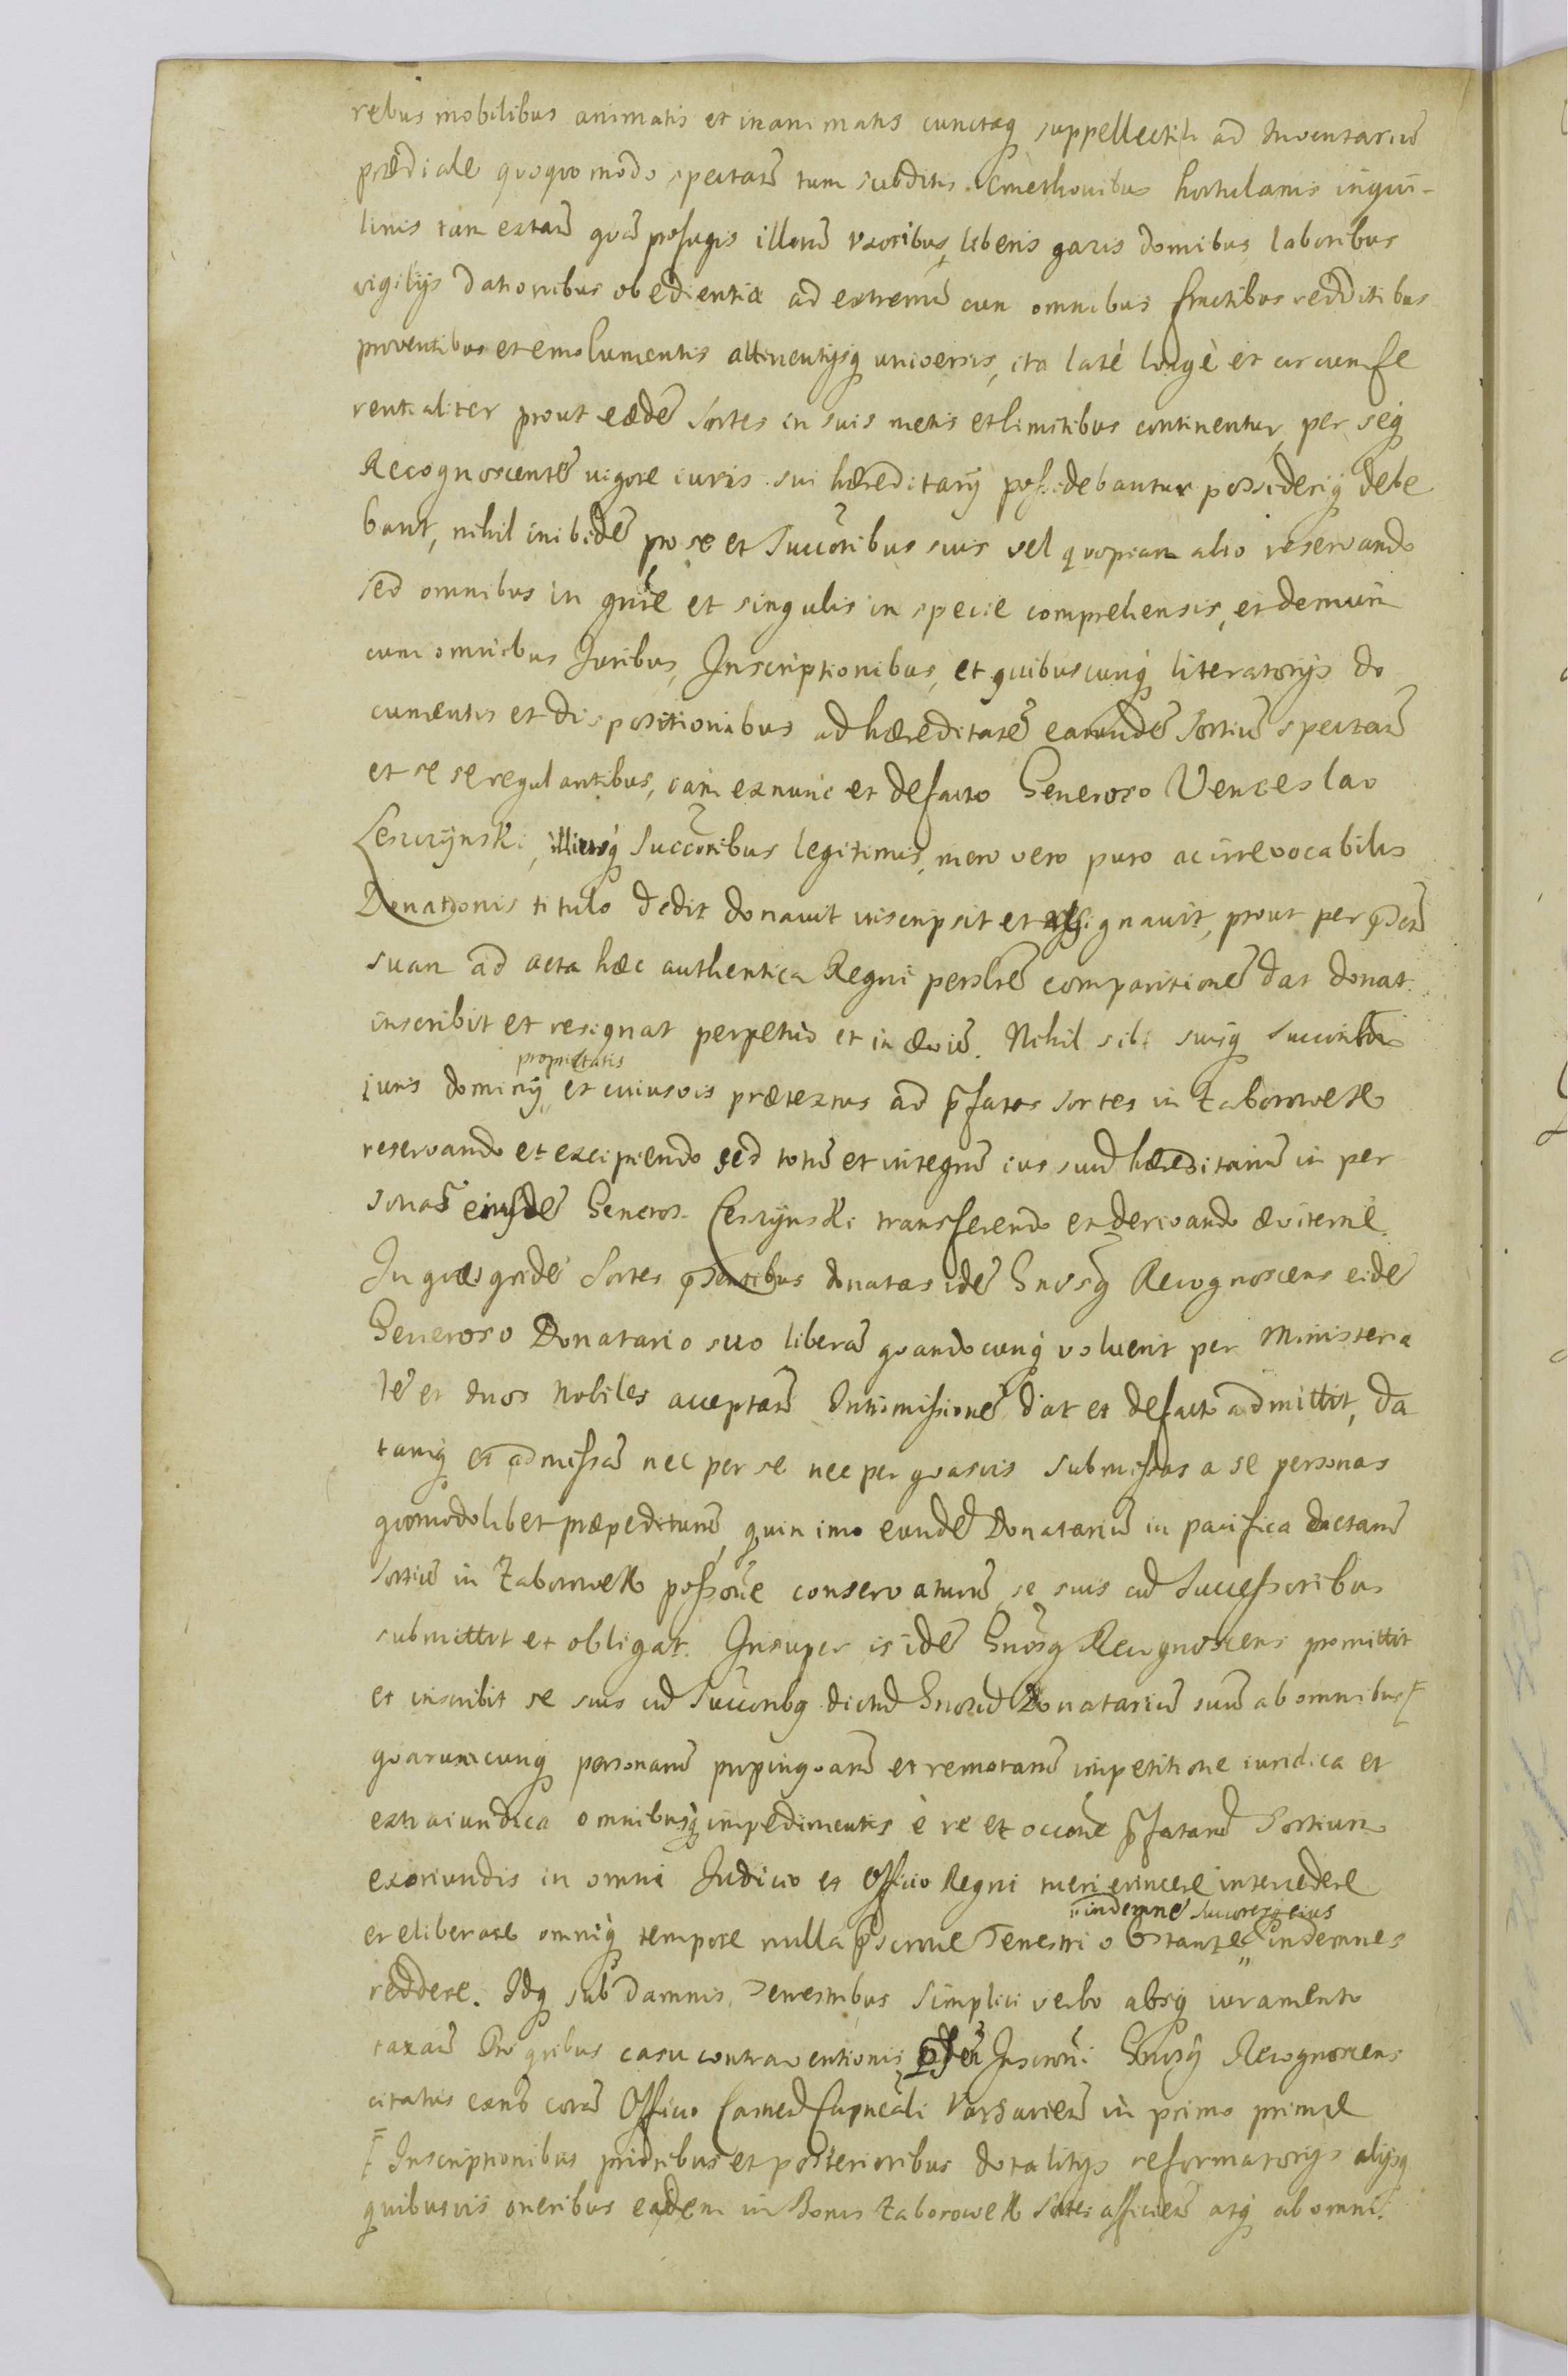 rebus mobilibus animatis et inanimatis cunctaq suppellectili ad Inventariū
prædiale quoquo modo spectatē tum subditis Cmethonibus hortulanis inqui-
linis tam extaň quā profugis illorū uxoribus, liberis gazis domibus laboribus
vigilijs dationibus obedientia ad extremū cum omnibus fructibus redditibus
proventibus et emolumentis attinentijsq universis, ita latè longè et circumfe
rentialiter prout eædē Sortes in suis metis et limitibus continentur, per seq
Recognoscentē vigore iuris sui hæreditarij possidebantur possideriq debe
bant, nihil inibidē pro se et Succoribus suis vel quopiam alio reservando
sed omnibus in gnře et singulis in specie comprehensis, et demum
cum omnibus Juribus, Inscriptionibus, et quibuscunq literatorijs do
cumentis et dispositionibus ad hæreditatē earundē Sortiū spectatē
et se se regulantibus, iam exnunc et defacto Generoso Venceslao
Lesczynski, illiusq Succoribus legitimis, mero vero puro ac irrevocabilis
Donationis titulo dedit donavit inscripsit et resignavit, prout per
suam ad acta hæc authentica Regni persłrē comparitionē dat donat
inscribit et resignat perpetuo et in ævū. Nihil sibi suisq Succoribus
proprietatis
iuris dominij " et cuiusvis prætextus ad pfatas Sortes in Zaborowek
reservando et excipiendo sed totū et integrū ius suū hæreditariū in per
sonā eiusdē Generosi Lesczynski transferendo et derivando æviternè.
In quas quidē Sortes pntibus donatas idē Gnosq Recognoscens eidē
Generoso Donatario suo liberā quandocunq voluerit per Ministeria
lē et duos Nobiles acceptatē Intromissionē dat et defacto admittit, da
tamq et admissā nec per se nec per quasvis submissas a se personas
quomodolibet præpediturū, quin imo eundē Donatariū in pacifica dictarū
Sortiū in Zaborowek possone conservaturū se suis cū Successoribus
submittit et obligat. Insuper is idē Gnosq Recognoscens promittit
et inscribit se suis cū Succoribq dictū Gnosū Donatariū suū ab omnibus
quarumcunq personarū propinquarū et remotarū impetitione iuridica et
extraiuridica omnibusq impedimentis è re et occone pfatarū Sortium
exoriundis in omni Judicio et Officio Regni tueri evincere intercedere
" indemnē Succores eius
et eliberare omniq tempore nulla pscrone Terestri obstante " indemnes
reddere. Idq sub damnis terestribus simplici verbo absq iuramento
taxaň Pro quibus casu contraventionis Inscroni Gnosq Recognoscens
citatus exnō corā Officio Castreň Capneali Varsavieň in primo primæ
Inscriptionibus prioribus et posterioribus dotalitijs reformatorijs alijsq
quibusvis oneribus eadem in Bonis Zaborowek Sortes afficieň atq ab omni